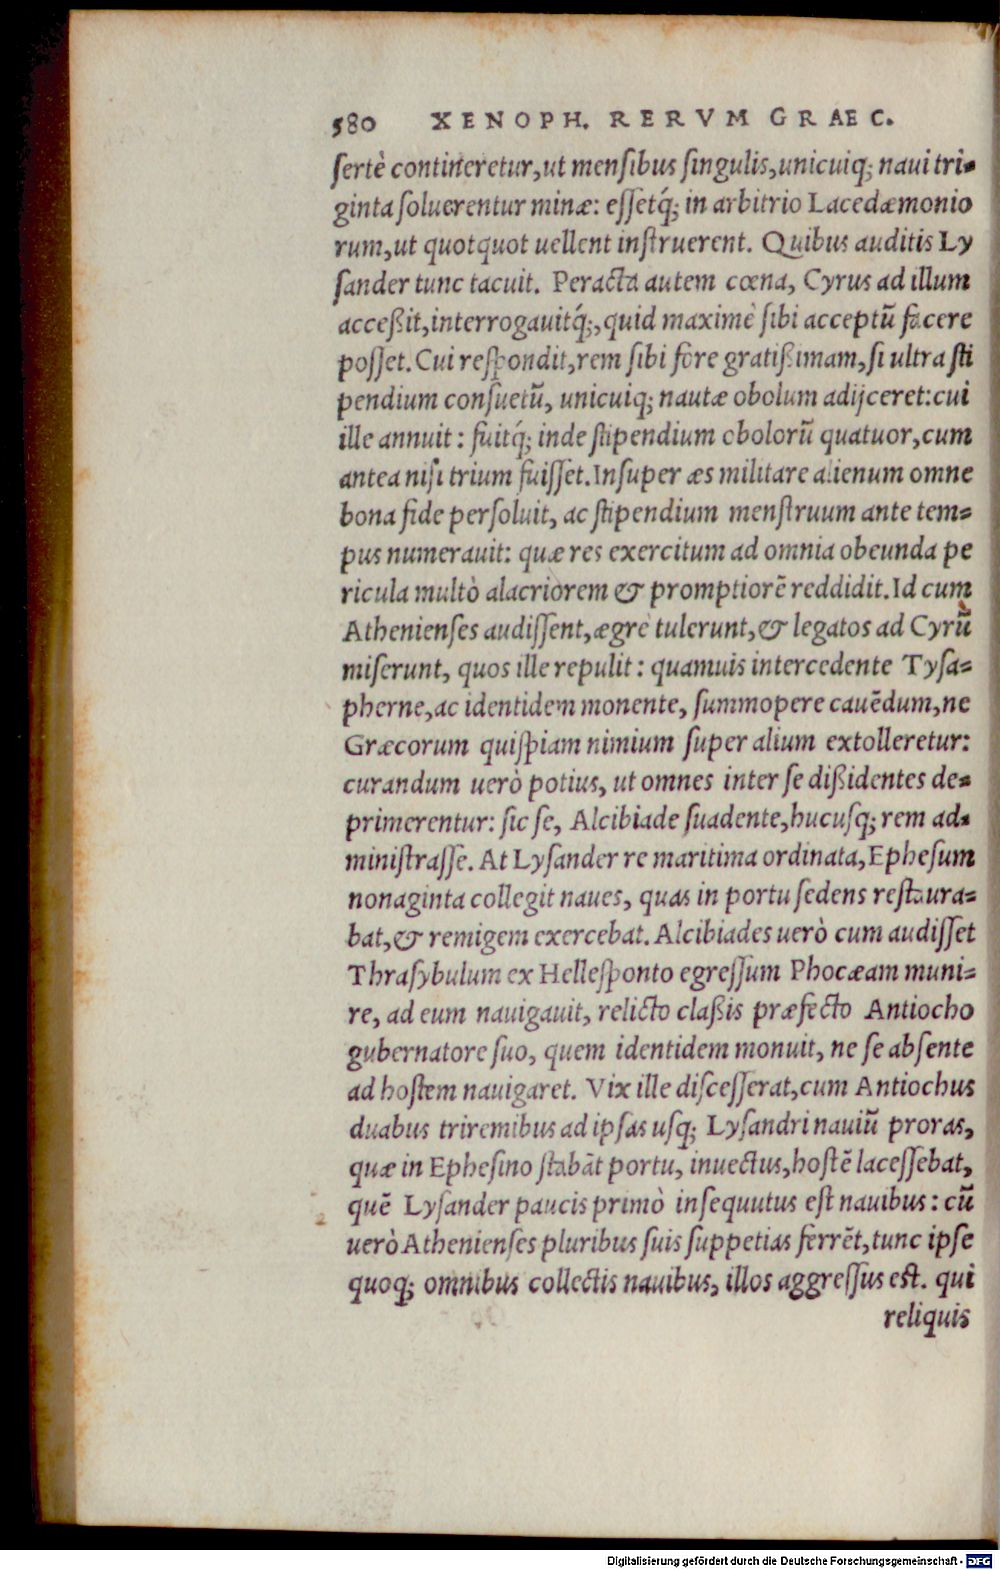 580 XENOPH. RERVM GRAEC.
sertè contineretur, ut mensibus singulis, unicuiq; naui tri-
ginta soluerentur minæ: essetq́; in arbitrio Lacedæmonio
rum, ut quotquot uellent instruerent. Quibus auditis Ly
sander tunc tacuit. Peracta autem cœna, Cyrus ad illum
acceßit, interrogauitq́;, quid maximè sibi acceptū facere
posset. Cui respondit, rem sibi fore gratißimam, si ultra sti
pendium consuetū, unicuiq; nautæ obolum adijceret: cui
ille annuit: fuitq́; inde stipendium obolorū quatuor, cum
antea nisi trium fuisset. Insuper æs militare alienum omne
bona fide persoluit, ac stipendium menstruum ante tem-
pus numerauit: quæ res exercitum ad omnia obeunda pe
ricula multò alacriorem & promptiorē reddidit. Id cum
Athenienses audissent, ægrè tulerunt, & legatos ad Cyrū
miserunt, quos ille repulit: quamuis intercedente Tysa-
pherne, ac identidem monente, summopere cauēdum, ne
Græcorum quispiam nimium super alium extolleretur:
curandum uerò potius, ut omnes inter se dißidentes de-
primerentur: sic se, Alcibiade suadente, hucusq; rem ad-
ministrasse. At Lysander re maritima ordinata, Ephesum
nonaginta collegit naues, quas in portu sedens restaura-
bat, & remigem exercebat. Alcibiades uerò cum audisset
Thrasybulum ex Hellesponto egressum Phocæam muni-
re, ad eum nauigauit, relicto claßis præfecto Antiocho
gubernatore suo, quem identidem monuit, ne se absente
ad hostem nauigaret. Vix ille discesserat, cum Antiochus
duabus triremibus ad ipsas usq; Lysandri nauiū proras,
quæ in Ephesino stabāt portu, inuectus, hostē lacessebat,
quē Lysander paucis primò insequutus est nauibus: cū
uerò Athenienses pluribus suis suppetias ferrēt, tunc ipse
quoq; omnibus collectis nauibus, illos aggressus est. qui
reliquis
Digitalisierung gefördert durch die Deutsche Forschungsgemeinschaft - DFG